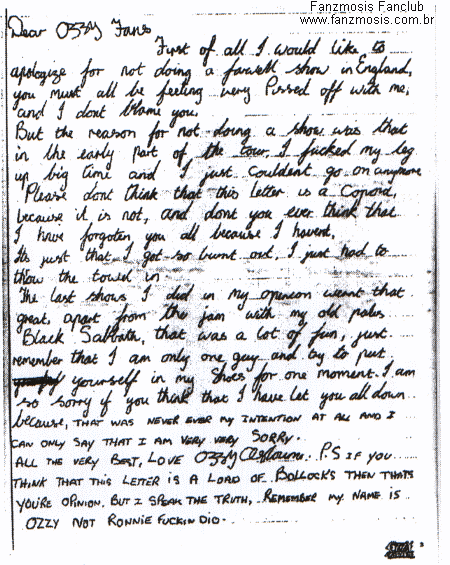 Fanzmosis Fanclub
www.fanzmosis.com.br
Dear OZZY Fans
First of all I would like to
apologize for not doing a farwell show in England,
you must all be feeling very Pissed off with me,
and I dont blame you.
But the reason for not doing a show was that
in the early part of the tour I fucked my leg
up big time and I just couldent go on anymore
Please dont think that this letter is a Copout,
because it is not, and dont you ever think that
I have forgoten you all because I havent,
Its just that I got so burnt out, I just had to
thow the towel in
The last shows I did in my opineon wernt that
great, apart from the jam with my old pales
Black Sabbath, that was a lot of fun, just
remember that I am only one guy and try to put
yourself in my shoes for one moment. I am
so sorry if you think that I have let you all down
because, THAT WAS NEVER EVER MY INTENTION AT ALL AND I
CAN ONLY SAY THAT I AM VERY VERY SORRY.
ALL THE VERY BEST, LOVE OZZY Osbourne. P.S IF YOU
THINK THAT THIS LETTER IS A LOAD OF BOLLOCK'S THEN THATS
YOU'RE OPINION, BUT I SPEAK THE TRUTH, REMEMBER MY NAME IS
OZZY NOT RONNIE FUCKIN DIO.